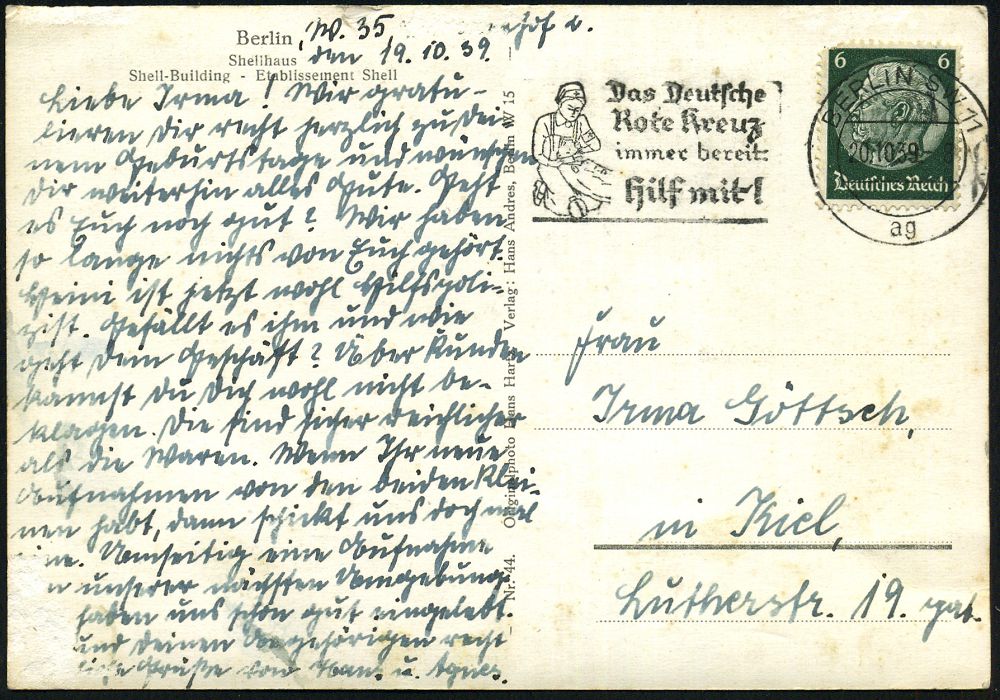 Berlin, W. 35
Shellhaus den 19.10.39.
Shell-Building - Etablissement Shell
Liebe Irma! Wir gratu-
lieren Dir recht herzlich zu Dei-
nem Geburtstage und wünschen
Dir weiterhin alles Gute. Geht
es Euch noch gut? Wir haben
so lange nichts von Euch gehört.
Heini ist jetzt wohl Hilfspoli-
zist. Gefällt es ihm und wie
geht dem Geschäft? Über Kunden
kannst Du Dich wohl nicht be-
klagen. Die sind sicher reichlicher
als die Waren. Wenn Ihr neue
Aufnahmen von den beiden Klei-
nen habt, dann schickt uns doch mal
ine. Umseitig eine Aufnahme
n unserer nächsten Umgebung
haben uns schon gut eingelebt.
und deinen Angehörigen recht
liche Grüße von Hans u. Agnes.
Nr. 44. Originalphoto Hans Hartz Verlag: Hans Andres, Berlin W 15
Das Deutsche
Rote Kreuz
immer bereit:
Hilf mit!
6 6
Deutsches Reich
BERLIN SW 11
20.10.39
ag
Frau
Irma Göttsch,
in Kiel,
Lutherstr. 19. pat.